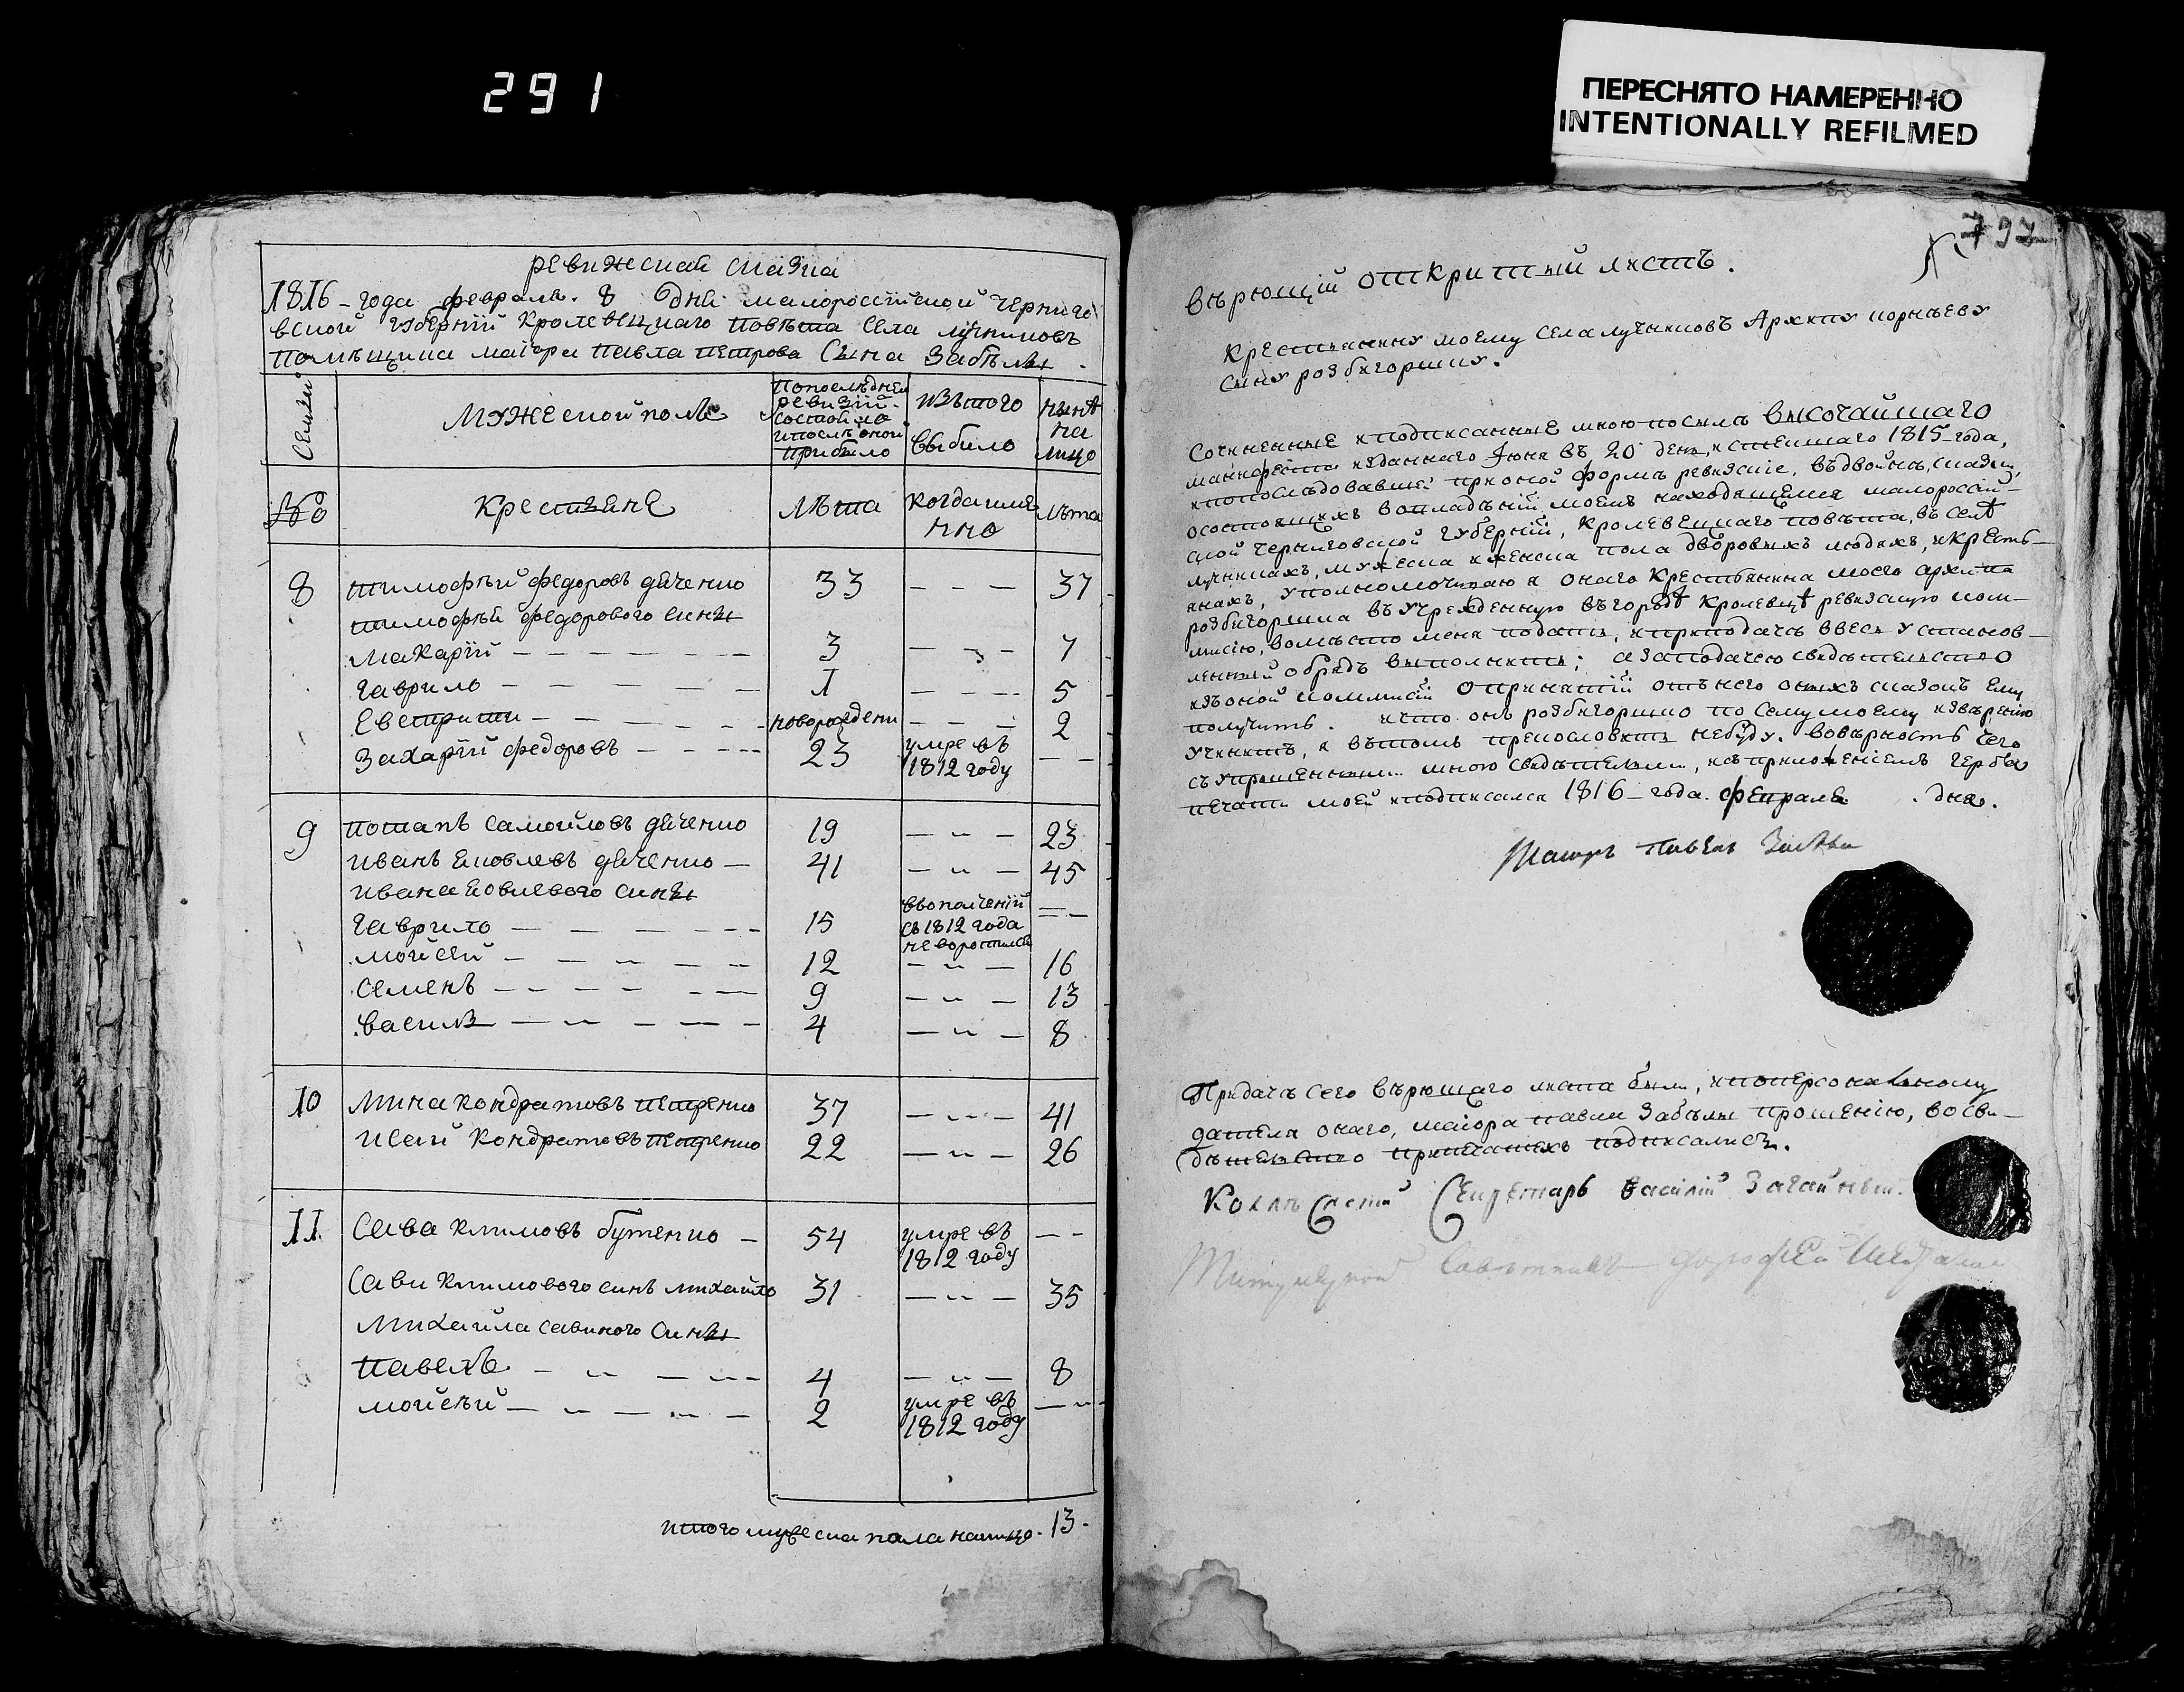 291
ПЕРЕСНЯТО НАМЕРЕННО
INTENTIONALLY REFILMED
ревижская сказка
1816-года февраля. 8 дня малороссійской черниго
вской губерніи Кролевецкаго повѣта села лучниковъ
помѣщика маіора павла петрова сына Забѣлы.
Семьи
Мужеской полъ
По последней
ревизіи
состояло
и после оной
прибыло
Изътого
выбыло
нынѣ
на
лицо
№
Крестьяне
Лѣта
когда имя
нно
лѣта
8
тимофѣй федоровъ дяченко
33
— — —
37
тимофѣя федорового сины
макарій
3
— — —
7
гаврило
1
— — —
5
Евстратий
новорожденн
— — —
2
Захарій федоровъ
23
умре въ
1812 году
— —
9
потапъ самойловъ дяченко
19
— — —
23
иванъ яковлевъ дяченко —
41
— — —
45
ивана яковлевого сины
гаврило
15
вополченій
съ 1812 года
не воротился
— —
мойсей
12
— — —
16
семенъ
9
— — —
13
василь
4
— — —
8
10
Мина кондратовъ петренко
37
— — —
41
Исай кондратовъ петренко
22
— — —
26
11
Сава климовъ бутенко —
54
умре въ
1812 году
— —
Сави климового синъ михайло
31
— — —
35
Михайла савиного сины
павелъ
4
— — —
8
мойсѣй
2
умре въ
1812 году
— —
итого мужеска пола налицо. 13.
797
вѣрющій открытый листъ.
Крестьянину моему села лучниковъ Архипу корнѣеву
сыну розбигоршку.
Сочиненные и подписанные мною посилѣ высочайшаго
манифеста изданнаго Іюня въ 20 день, истекшаго 1815-года,
ипопослѣдовавшей прионой формѣ ревизскіе, въдвойнѣ, сказки,
осостоящихъ вовладѣніи моемъ находящемся малороссій-
ской черниговской губерніи, Кролевецкаго повѣта, въ селѣ
лучникахъ, мужеска иженска пола дворовыхъ людяхъ, икресть-
янахъ, уполномочиваю я онаго крестьянина моего архипа
розбигоршка въ учрежденную въгородѣ Кролевцѣ ревизскую ком-
мисію, вомѣсто меня подать, иприподачѣ ввесь установ-
ленный обрядъ выполнить; азаподачею свидѣтельство
изъоной коммисіи опринятіи отънего оныхъ сказокъ ему
получить. ичто онъ розбигоршко по сему моему извѣренію
учинитъ, я втомъ прекословить небуду. вовѣрность чего
съ упрошенными мною свидѣтелми, исприложеніемъ герба
печати моей иподписался 1816-года. февраля . дня.
Маіоръ Павелъ Забѣла
Придачѣ сего вѣрющаго листа были, ипоперсональному
дателя онаго, маіора павла Забѣлы прошенію, восви-
дѣтельство припечатехъ подписались.
Секретарь василій
Титулярной Совѣтникъ